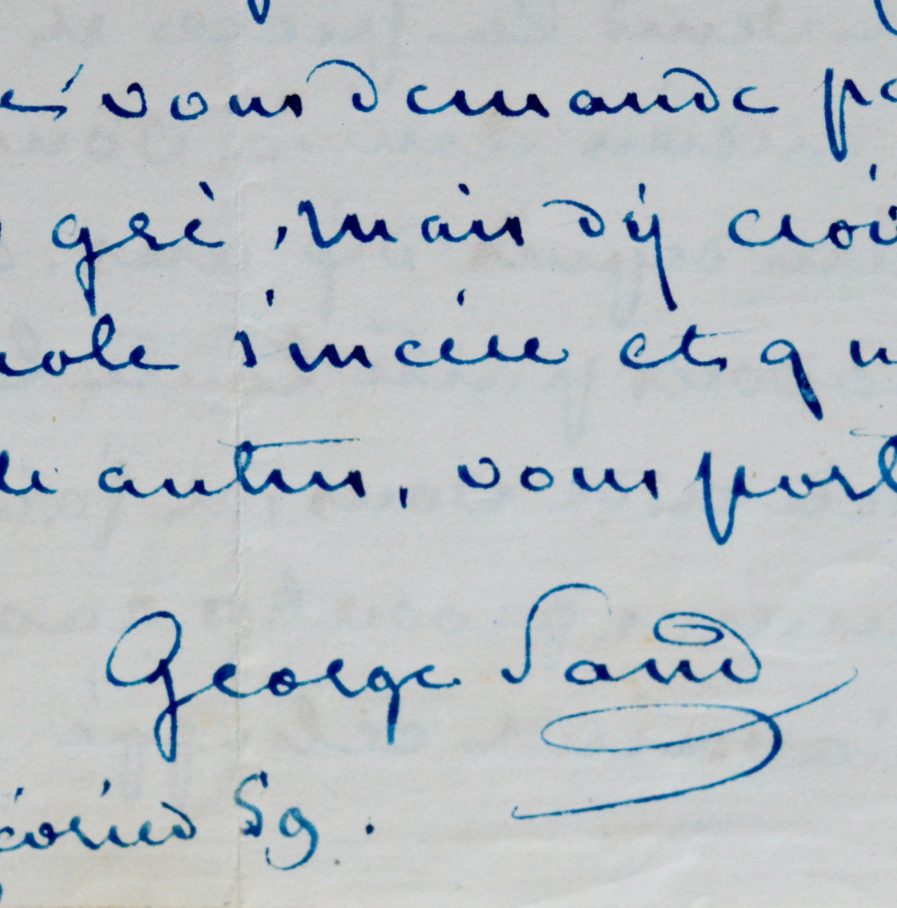 vous demande
gré, mais d'y croi
sincère et qu
autres, vous port
George Sand
59.